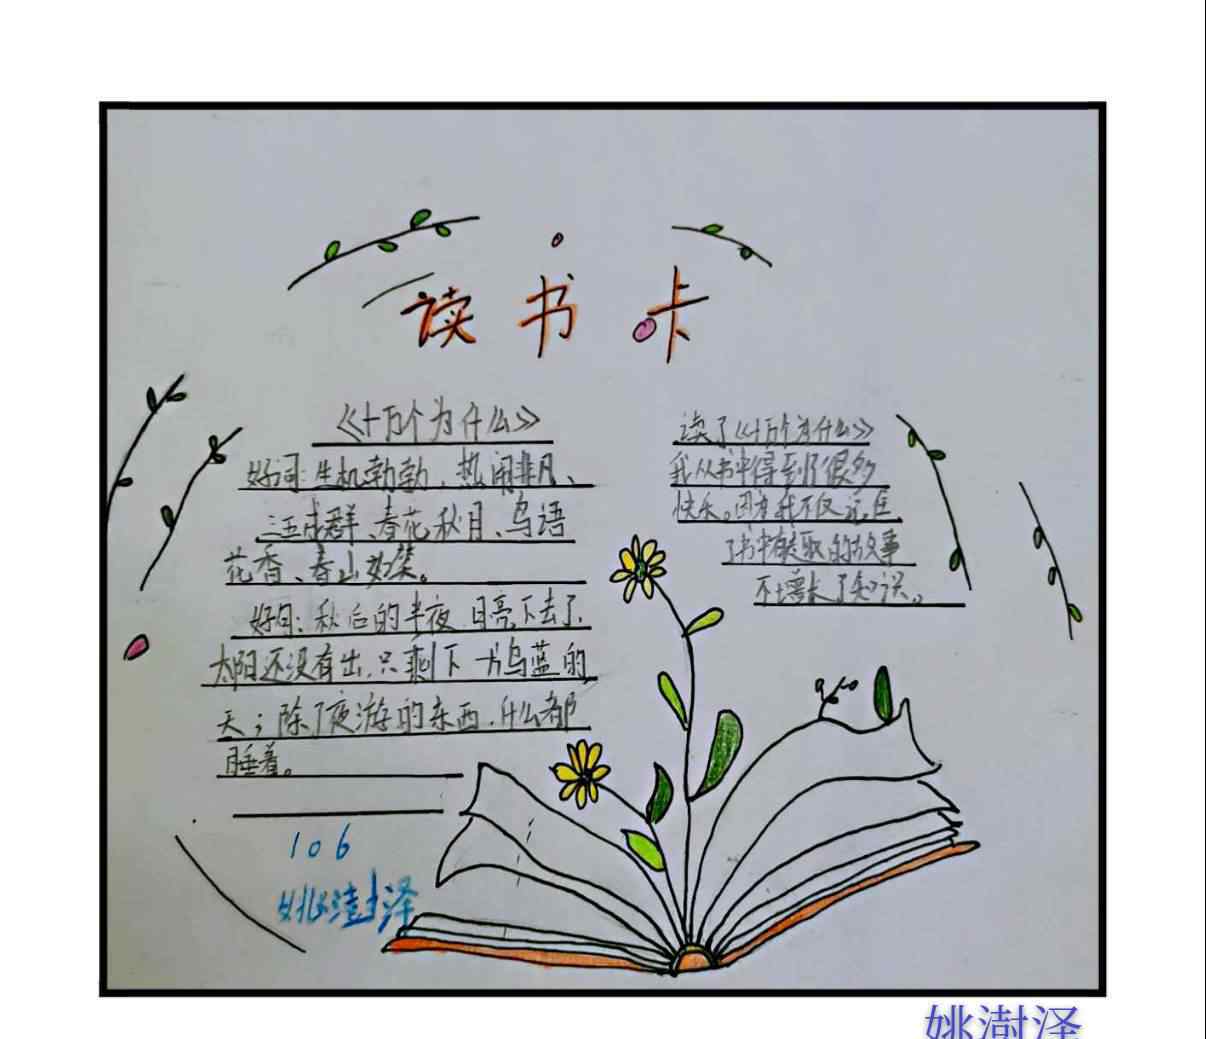 读书卡
《十万个为什么》
好词:生机勃勃、热闹非凡、
三五成群、春花秋月、鸟语
花香、春山如笑。
好句:秋后的半夜,月亮下去了,
太阳还没有出,只剩下一片乌蓝的
天;除了夜游的东西,什么都
睡着。
106
姚澍泽
读了《十万个为什么》
我从书中得到了很多
快乐。因为我不仅记住
了书中有趣的故事
不增长了知识。
姚澍泽